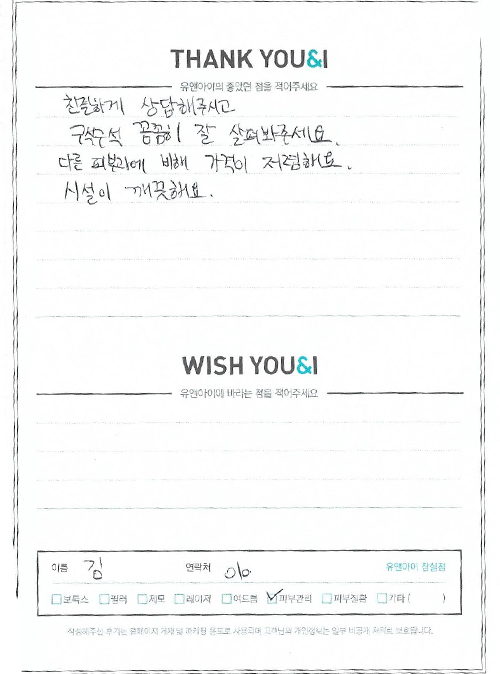 THANK YOU&I
유앤아이의 좋았던 점을 적어주세요
친절하게 상담해주시고
구석구석 꼼꼼히 잘 살펴봐주세요.
다른 피부과에 비해 가격이 저렴해요.
시설이 깨끗해요.
WISH YOU&I
유앤아이에 바라는 점을 적어주세요
이름 김 연락처 010 유앤아이 잠실점
보톡스 필러 제모 레이저 여드름 피부관리 피부질환 기타 ( )
작성해주신 후기는 홈페이지 게재 및 마케팅 용도로 사용되며 고객님의 개인정보는 일부 비공개 처리로 보호됩니다.